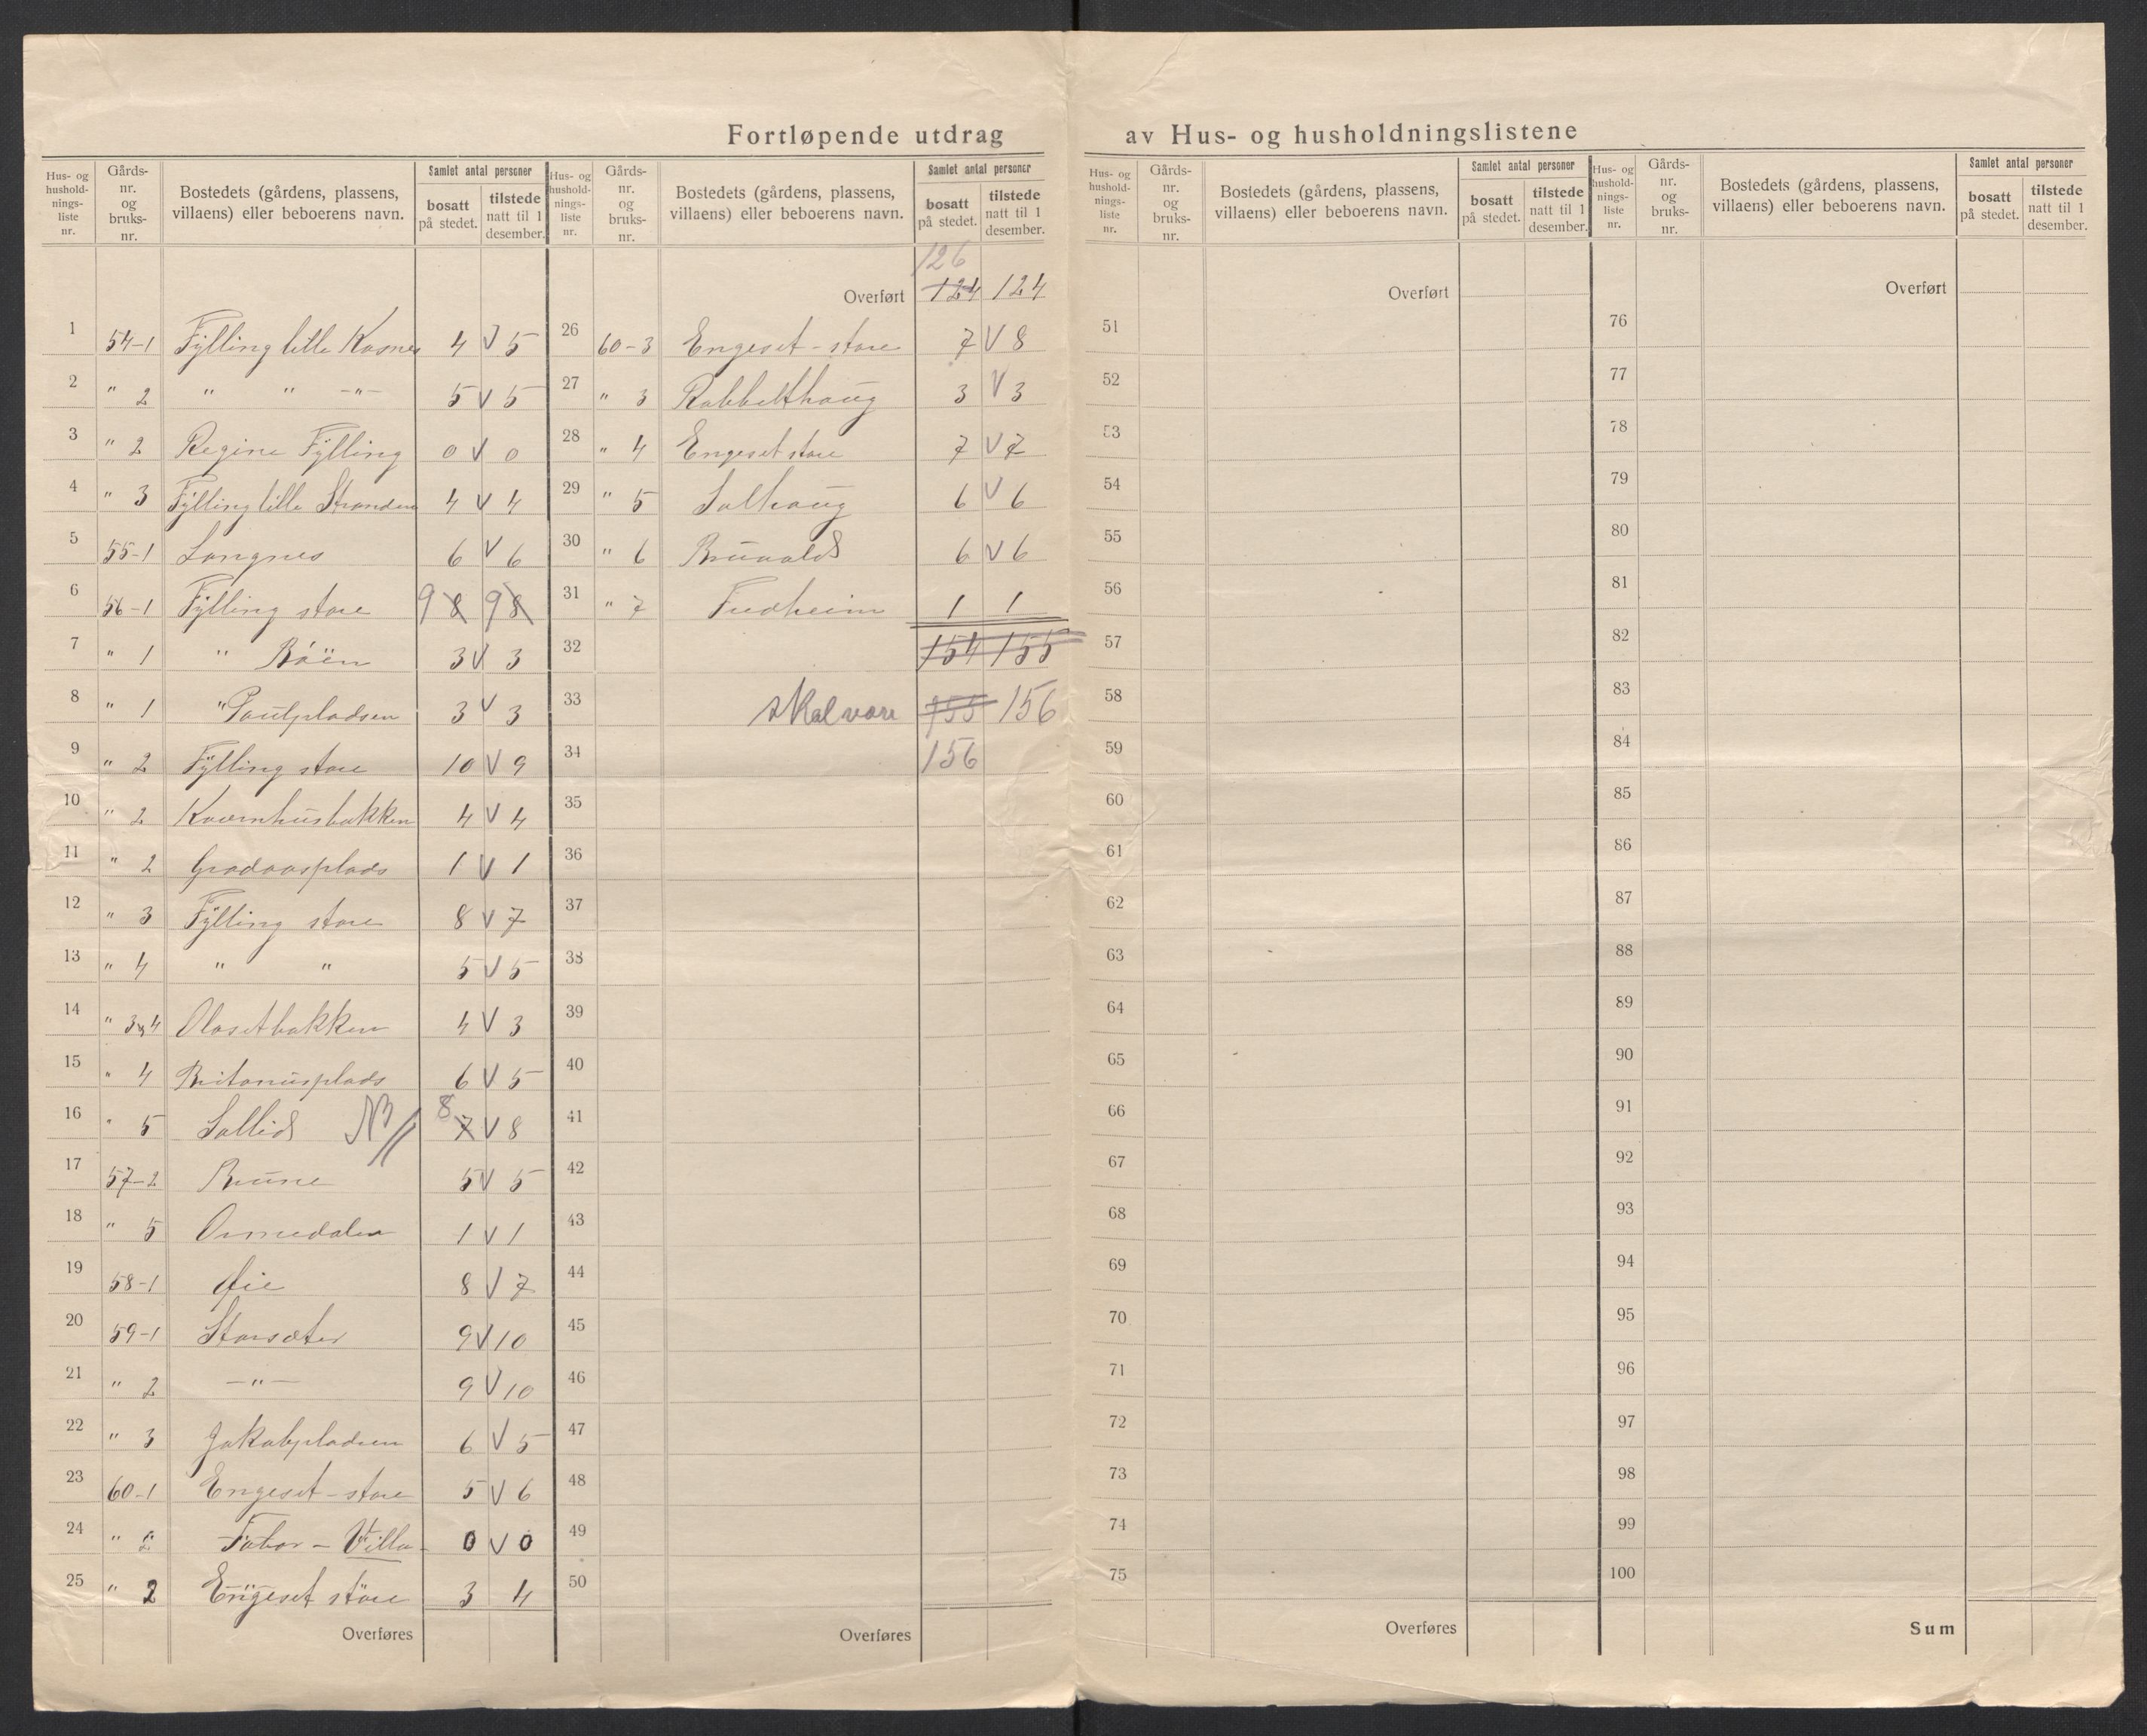 Fortløpende utdrag av Hus- og husholdningslistene
Hus- og hushold- nings- liste nr. | Gårds- nr. og bruks- nr. | Bostedets (gårdens, plassens, villaens) eller beboerens navn. | Samlet antal personer | bosatt på stedet. | tilstede natt til 1 desember.
1 54-1 Fylling lille Kosnes 4 V 5
2 " 2 " " -"- 5 V 5
3 " 2 Regine Fylling 0 V 0
4 " 3 Fylling lille Stranden 4 V 4
5 55-1 Langnes 6 V 6
6 56-1 Fylling store 9 8 9 8
7 " 1 " Böen 3 V 3
8 " 1 " Paulpladsen 3 V 3
9 " 2 Fylling store 10 V 9
10 " 2 Kvernhusbakken 4 V 4
11 " 2 Gradaasplads 1 V 1
12 " 3 Fylling store 8 V 7
13 " 4 " " 5 V 5
14 " 3 og 4 Olasetbakken 4 V 3
15 " 4 Britanusplads 6 V 5
16 " 5 Sollid NB 8 7 V 8
17 57-2 Brune 5 V 5
18 " 5 Ormedalen 1 V 1
19 58-1 Øie 8 V 7
20 59-1 Storsæter 9 V 10
21 " 2 -"- 9 V 10
22 " 3 Jakobpladsen 6 V 5
23 60-1 Engeset-store 5 V 6
24 " 2 Tabor - Villa 0 V 0
25 " 2 Engeset store 3 4
Overføres
Hus- og hushold- nings- liste nr. | Gårds- nr. og bruks- nr. | Bostedets (gårdens, plassens, villaens) eller beboerens navn. | Samlet antal personer | bosatt på stedet. | tilstede natt til 1 desember.
126
Overført 124 124
26 60-3 Engeset-store 7 V 8
27 " 3 Rabbelhaug 3 V 3
28 " 4 Engeset store 7 V 7
29 " 5 Solhaug 6 V 6
30 " 6 Bruvold 6 V 6
31 " 7 Fredheim 1 1
32 154 155
33 skal være 155 156
34 156
35
36
37
38
39
40
41
42
43
44
45
46
47
48
49
50
Overføres
Hus- og hushold- nings- liste nr. | Gårds- nr. og bruks- nr. | Bostedets (gårdens, plassens, villaens) eller beboerens navn. | Samlet antal personer | bosatt på stedet. | tilstede natt til 1 desember.
Overført
51
52
53
54
55
56
57
58
59
60
61
62
63
64
65
66
67
68
69
70
71
72
73
74
75
Overføres
Hus- og hushold- nings- liste nr. | Gårds- nr. og bruks- nr. | Bostedets (gårdens, plassens, villaens) eller beboerens navn. | Samlet antal personer | bosatt på stedet. | tilstede natt til 1 desember.
Overført
76
77
78
79
80
81
82
83
84
85
86
87
88
89
90
91
92
93
94
95
96
97
98
99
100
Sum